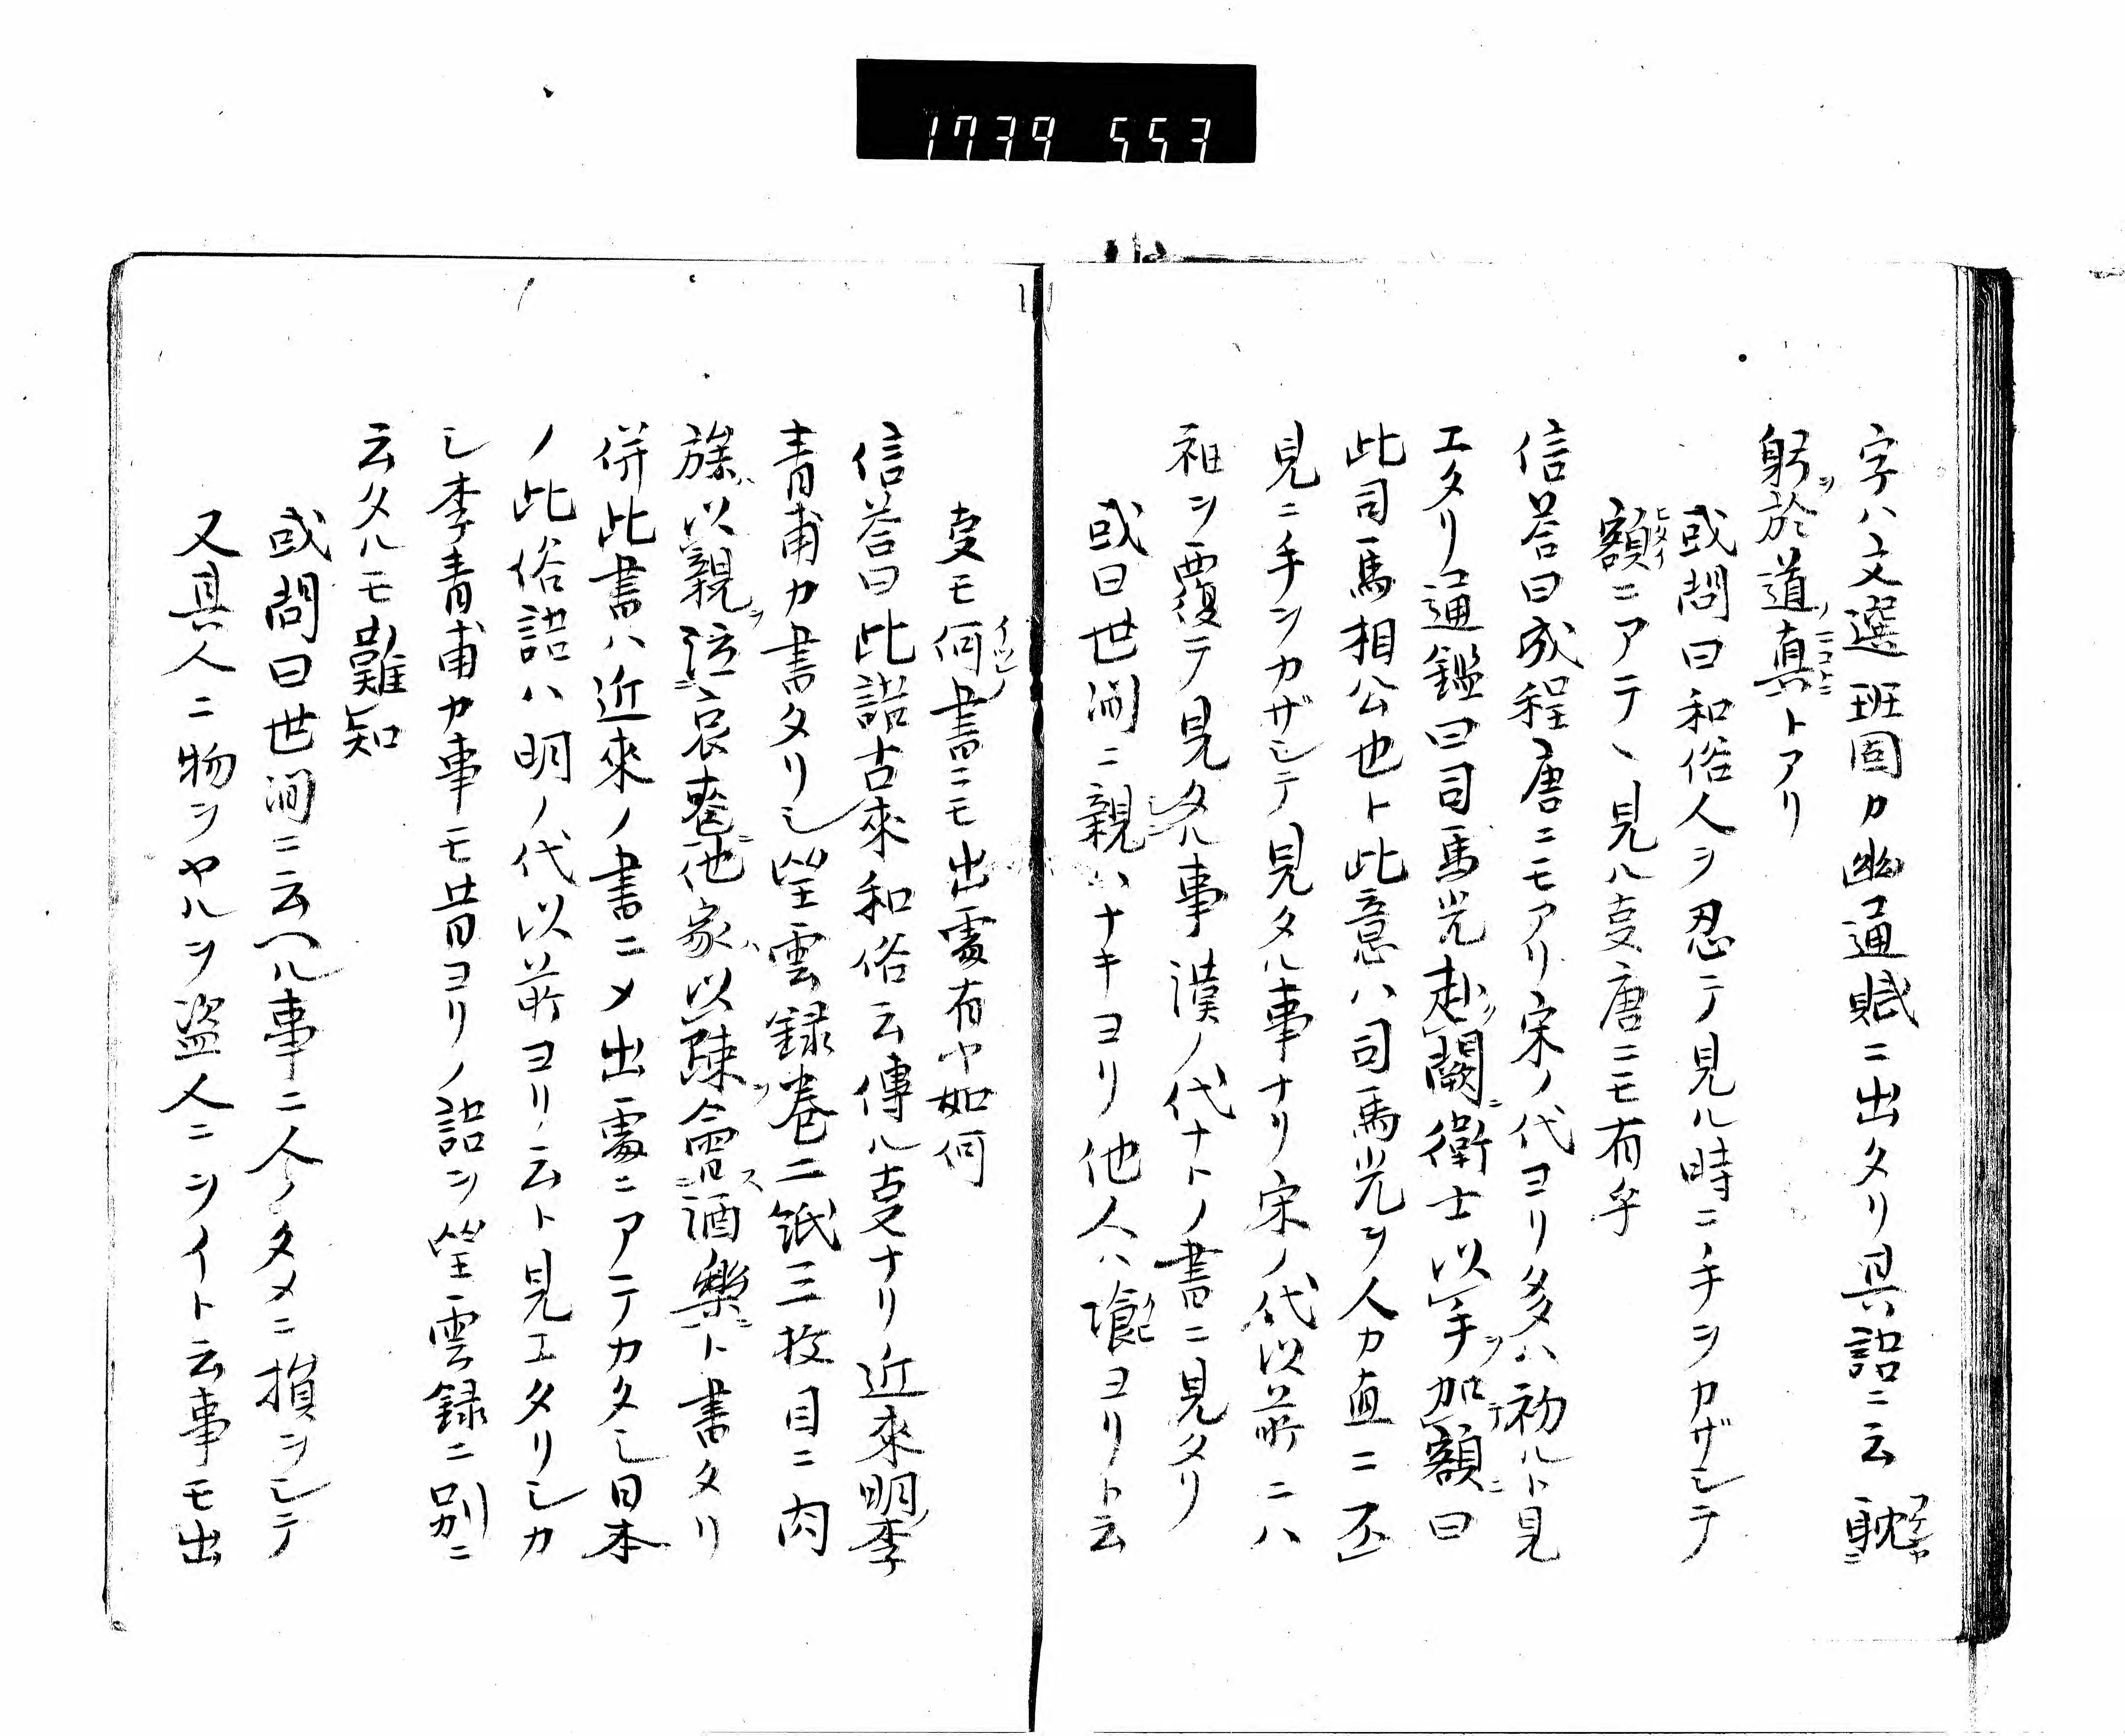 1739 553
字ハ文選班固カ幽通賦ニ出タリ具詔ニ云躭
躬於道真トアリ
或問曰和俗人ヲ忍テ見ル時ニ手ヲカザシテ
額ニアテヽ見ルヿ唐ニモ有乎
信答曰成程唐ニモアリ宋ノ代ヨリ多ハ初ルト見
エタリ通鑑曰司馬光赴闕衛士以手加額曰
此司馬相公也ト此意ハ司馬光ヲ人カ直ニ不
見ニ手ヲカザシテ見タル事ナリ宋ノ代以前ニハ
袖ヲ覆テ見タル事漢ノ代ナトノ書ニ見タリ
或曰世間ニ親ハナキヨリ他人ハ喰ヨリト云
事モ何書ニモ出處有ヤ如何
信答曰此語古來和俗云傳ル事ナリ近來明李
青甫カ書タリシ笙雲録巻二紙三枚目ニ肉
族以親泣哀喪他家以疎會酒樂ト書タリ
併此書ハ近來ノ書ニメ出處ニアテカタシ日本
ノ此俗語ハ明ノ代以前ヨリ云ト見エタリシカ
シ李青甫カ事モ昔ヨリノ語ヲ笙雲録ニ別ニ
云タルモ難知
或問曰世間ニ云ヘル事ニ人ノタメニ損ヲシテ
又具人ニ物ヲヤルヲ盗人ニヲイト云事モ出